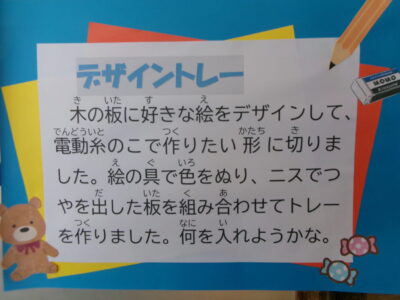 デザイントレー
木の板に好きな絵をデザインして、
電動糸のこで作りたい形に切りま
した。絵の具で色をぬり、ニスでつ
やを出した板を組み合わせてトレー
を作りました。何を入れようかな。
MOMO